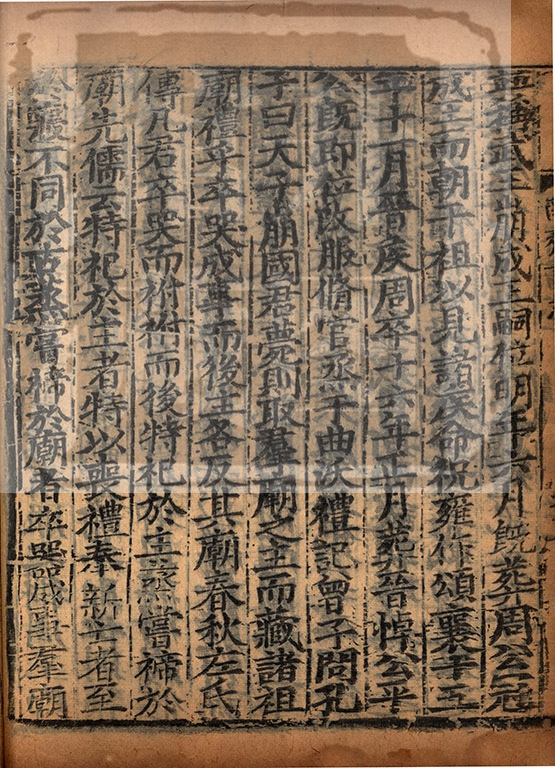 稱武王崩成王嗣位明年六月既葬周公冠
成王而朝于祖以見諸侯命祝雍作頌襄十五
年十一月晉侯周卒十六年正月葬晉悼公平
公既即位改服脩官烝于曲沃禮記曾子問孔
子曰天子崩國君薨則取羣廟之主而藏諸祖
廟禮卒哭成事而後主各反其廟春秋左氏
傳凡君卒哭而祔祔而後特祀於主烝嘗禘於
廟先儒云特祀於主者特以喪禮奉新亡者至
於寢不同於吉烝嘗禘於廟者卒哭成事羣廟